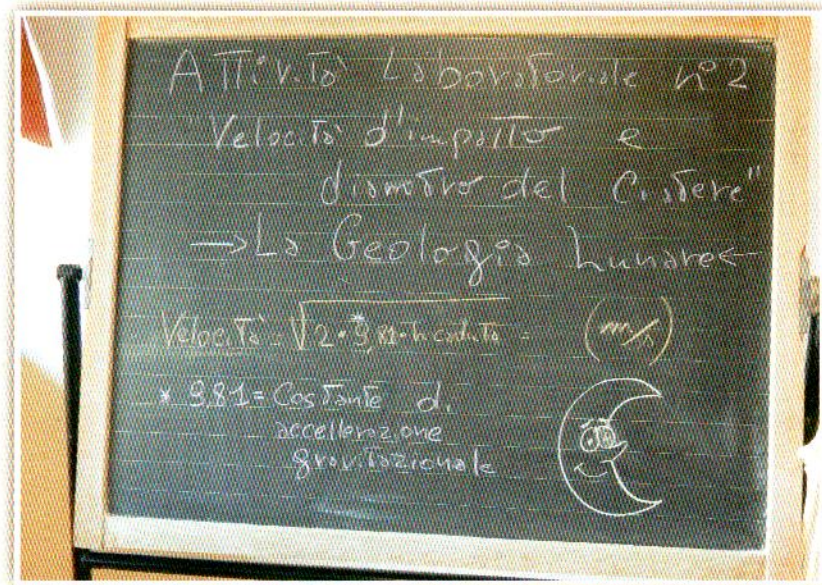 Attività Laboratoriale n°2
"Velocità d'impatto e
diametro del Cratere"
→ La Geologia Lunare ←
Velocità = √2 · 9,81* · h caduta = (m/s)
* 9,81 = Costante di
accellerazione
gravitazionale